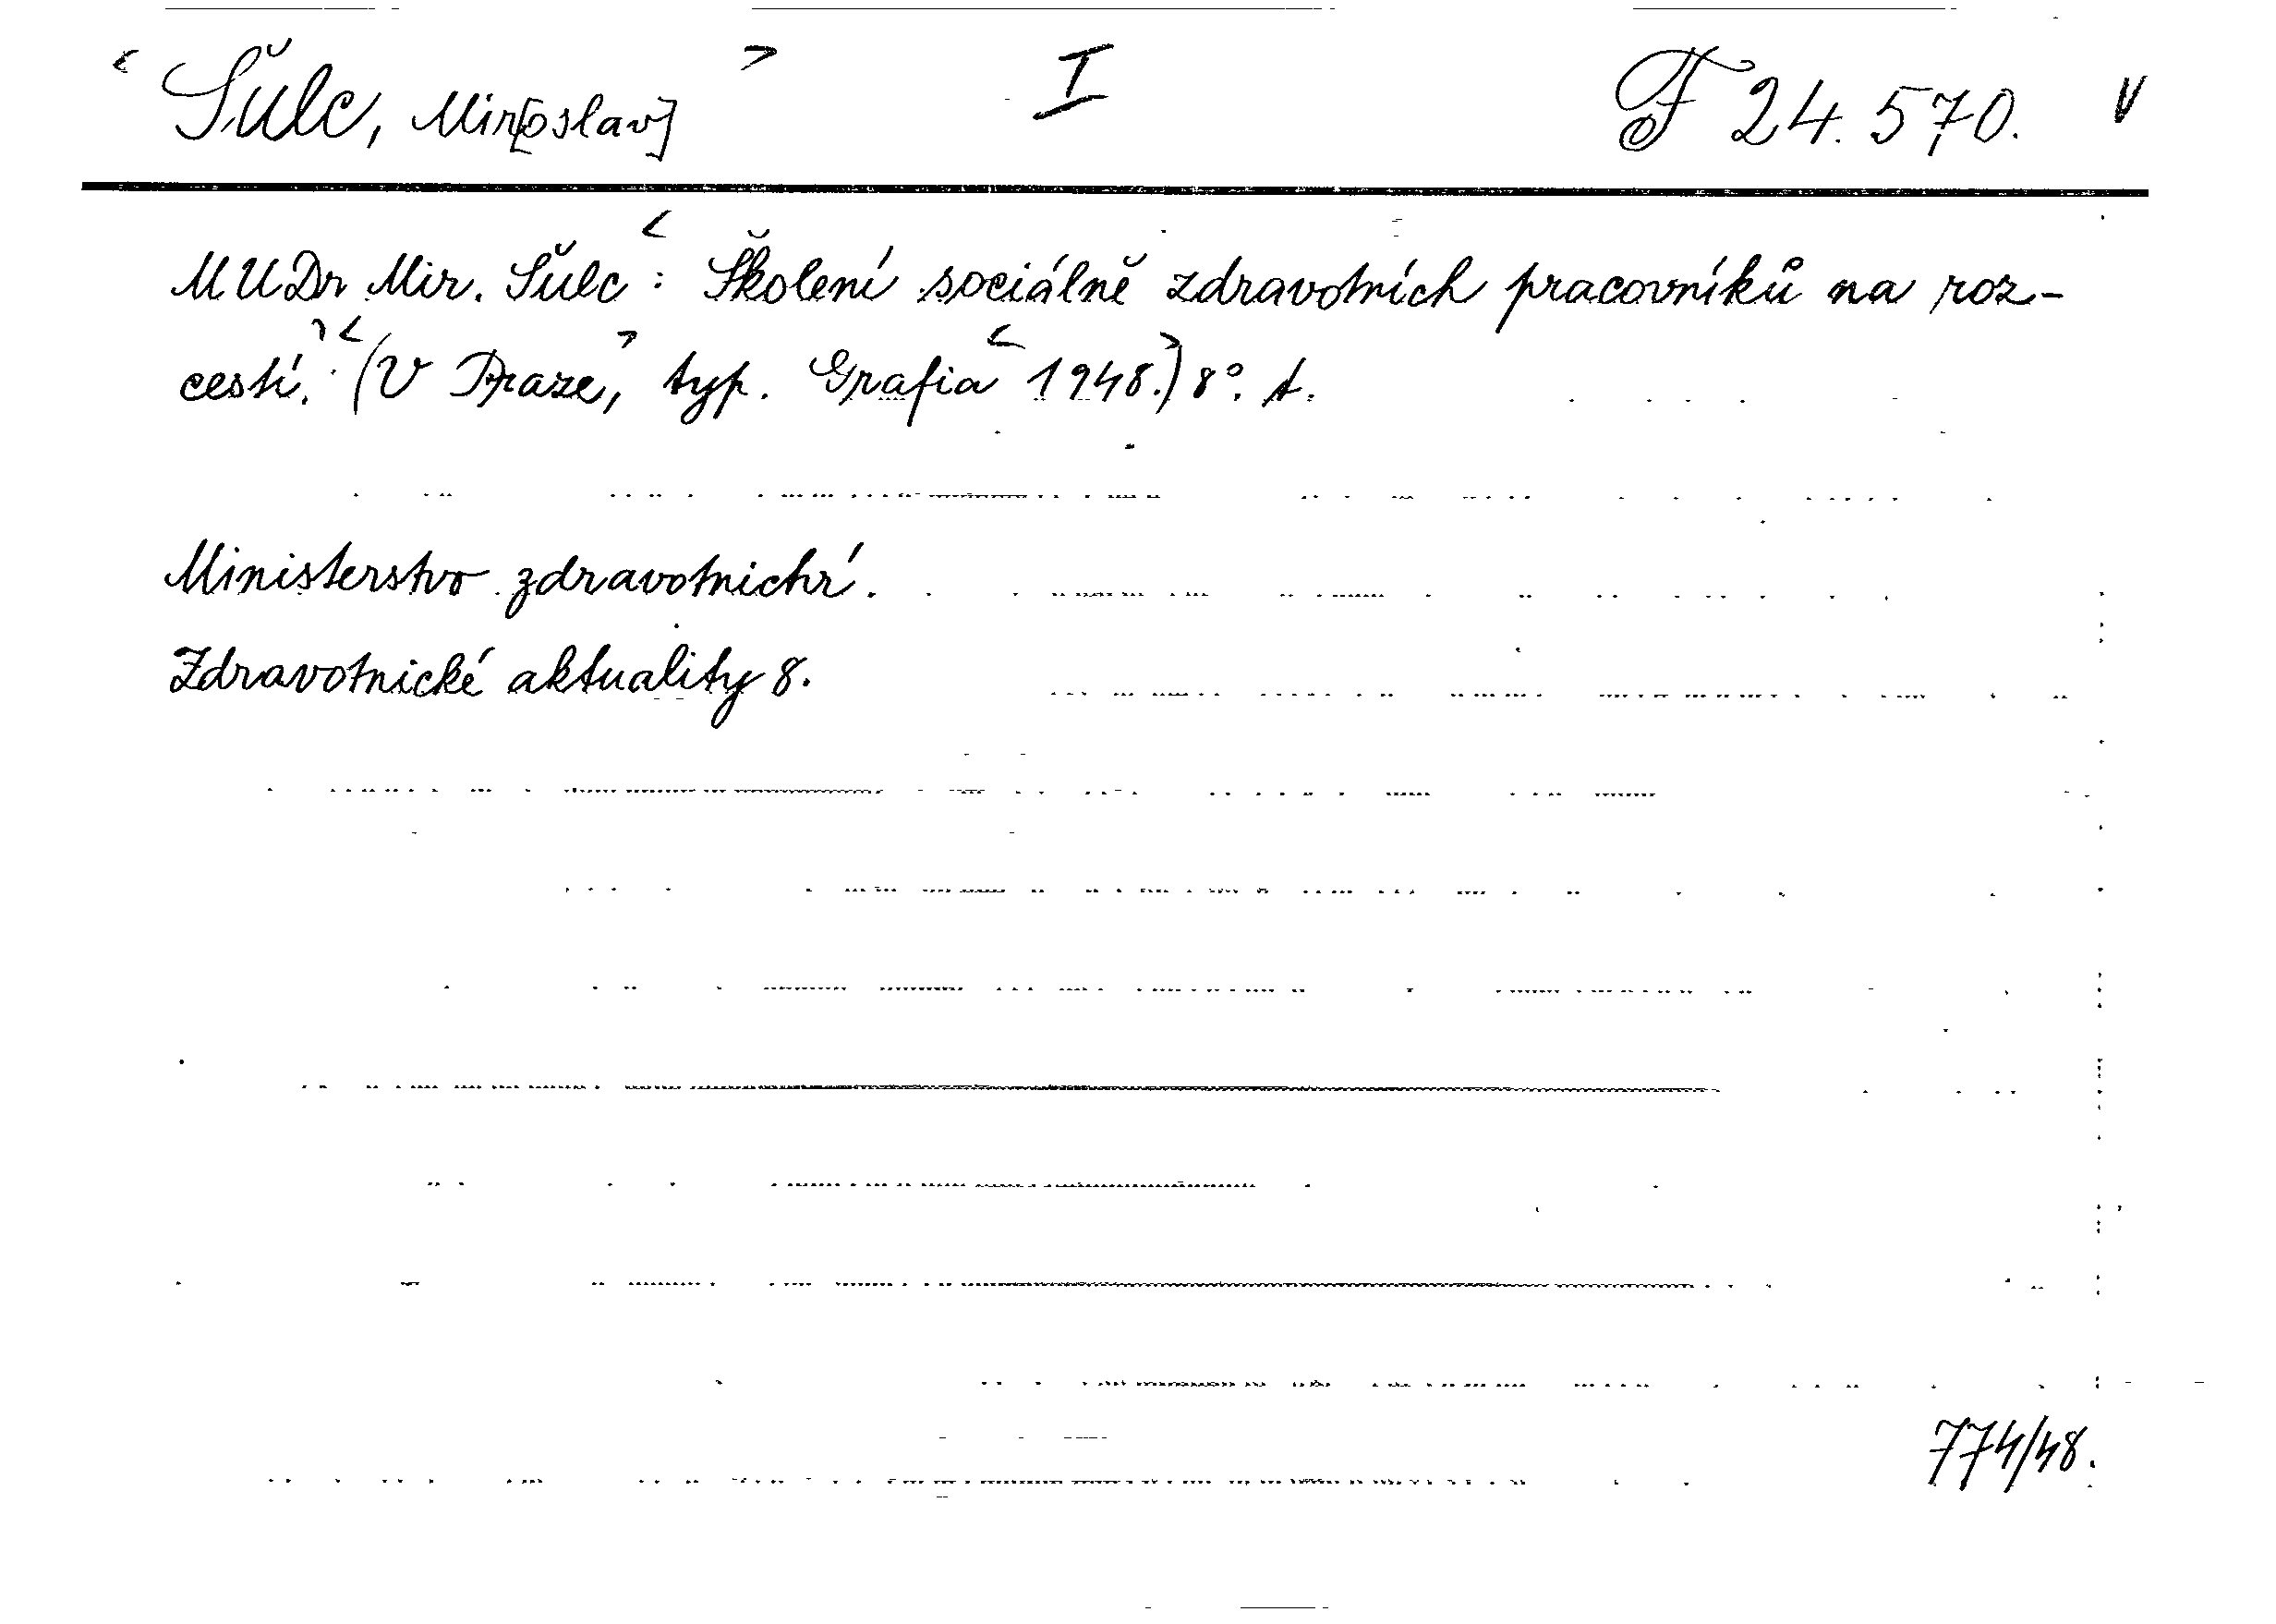 < Šulc, Mir[oslav] > I F 24.570. V
MUDr Mir. Šulc : < Školení sociálně zdravotních pracovníků na roz-
cestí. > < (V Praze, > typ. Grafia < 1948.) > 8°. t.
Ministerstvo zdravotnictví.
Zdravotnické aktuality 8.
774/48.